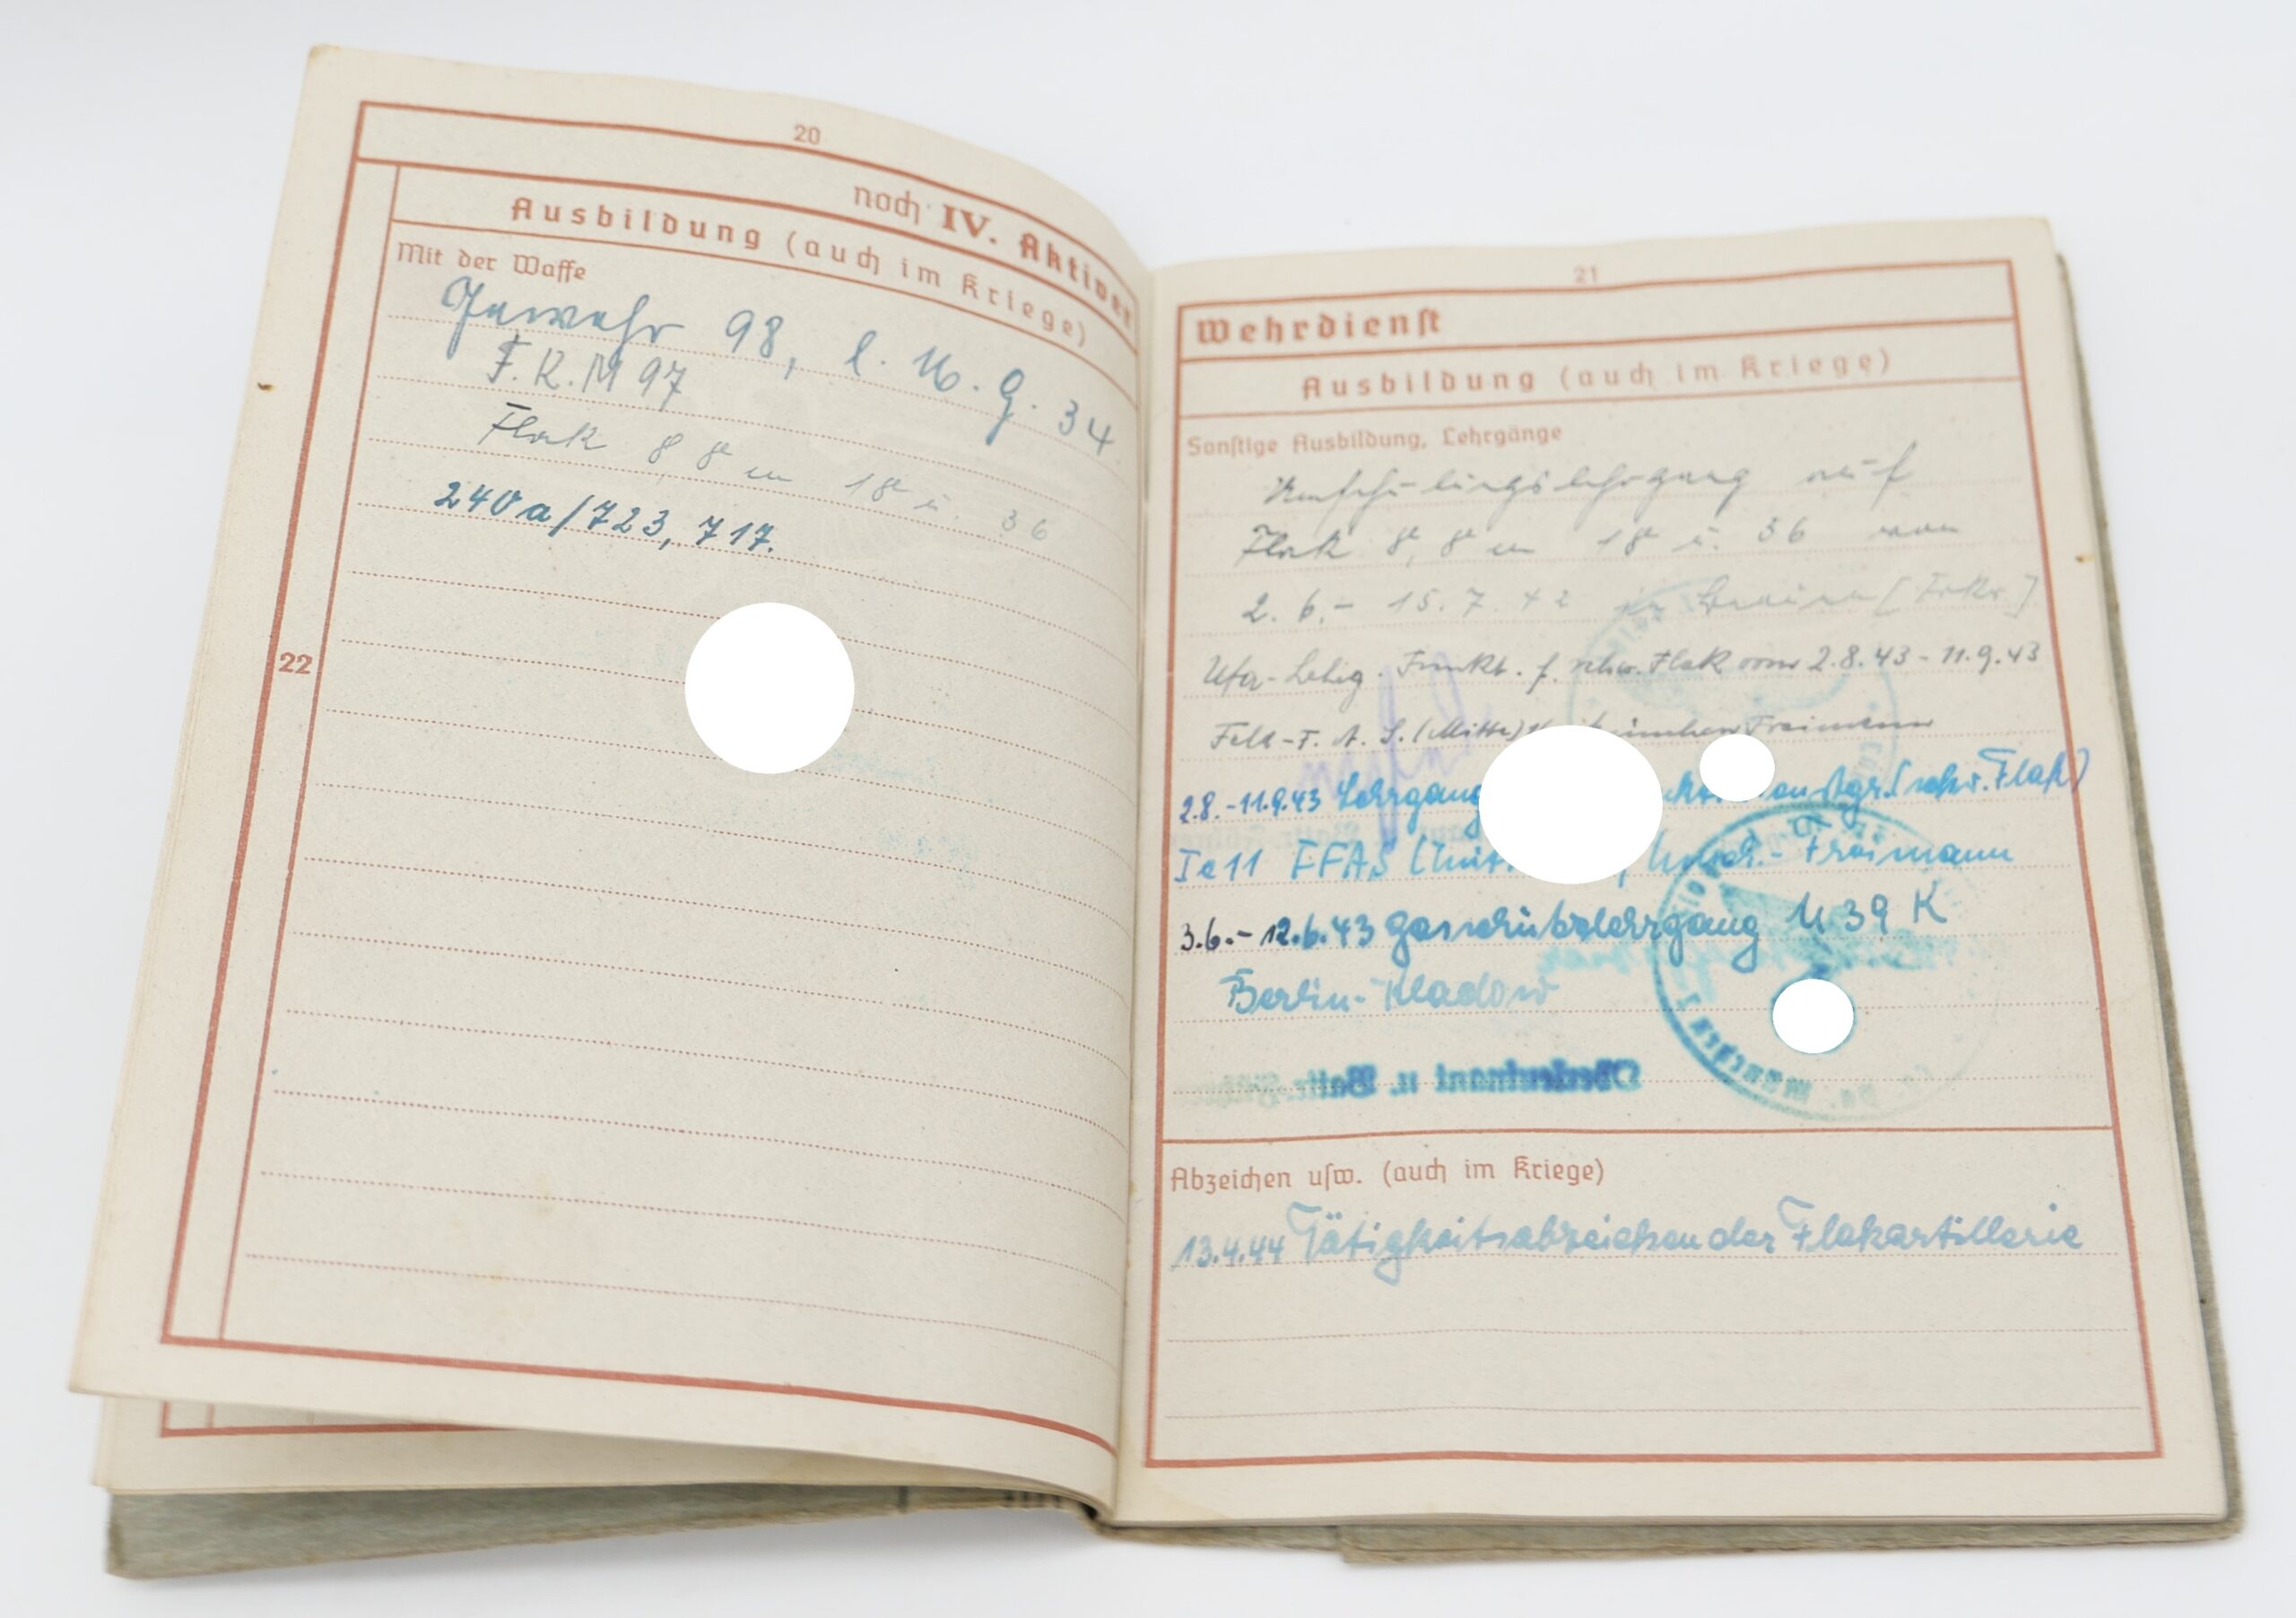 20
noch IV. Aktiver
Ausbildung (auch im Kriege)
Mit der Waffe
Gewehr 98, l. M. G. 34
F. K. M 97
Flak 8,8 cm 18 u. 36
240a/723, 717.
22
21
Wehrdienst
Ausbildung (auch im Kriege)
Sonstige Ausbildung, Lehrgänge
Umschulungslehrgang auf
Flak 8,8 cm 18 u. 36 vom
2. 6. - 15. 7. 42 in
Ufa-Lehrg. Funkt. f. schw. Flak vom 2.8.43 - 11.9.43
Feld-F. A. S. (Mitte) München Freimann
2.8.-11.9.43 Lehrgang (schw. Flak)
FFAS Freimann
3.6. - 12.6.43 Gasschutzlehrgang U 39 K
Berlin-Kladow
Oberleutnant u. Battr.
München
Abzeichen usw. (auch im Kriege)
13.4.44 Tätigkeitsabzeichen der Flakartillerie